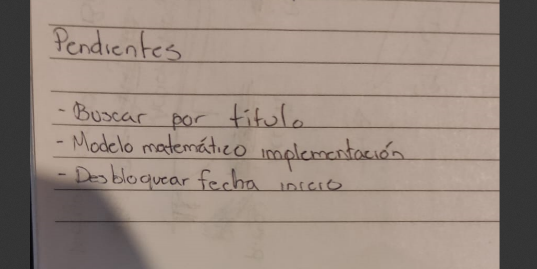 Pendientes
- Buscar por titulo
- Modelo matemático implementación
- Desbloquear fecha inicio